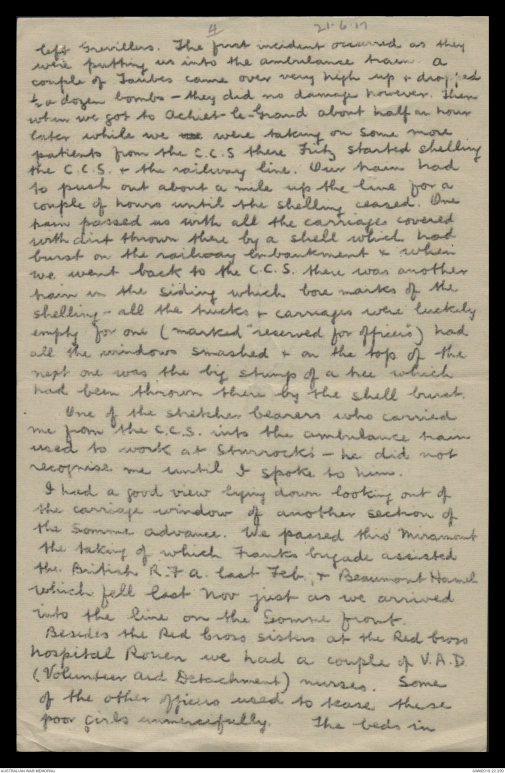 4 21.6.17
left Grevillers. The first incident occurred as they
were putting us into the ambulance train. A
couple of Taubes came over very high up & dropped
½ a dozen bombs – they did no damage however. Then
when we got to Achiet-le-Grand about half an hour
later while we were taking on some more
patients from the C.C.S there Fritz started shelling
the C.C.S. & the railway line. Our train had
to push out about a mile up the line for a
couple of hours until the shelling ceased. One
train passed us with all the carriages covered
with dirt thrown there by a shell which had
burst on the railway embankment & when
we went back to the C.C.S. there was another
train in the siding which bore marks of the
shelling – all the trucks & carriages were luckily
empty for one (marked "reserved for officers") had
all the windows smashed & on the top of the
next one was the big stump of a tree which
had been thrown there by the shell burst.
One of the stretcher bearers who carried
me from the C.C.S. into the ambulance train
used to work at Sturrock's – he did not
recognise me until I spoke to him.
I had a good view lying down looking out of
the carriage window of another section of
the Somme advance. We passed thro' Miramont
the taking of which Franks brigade assisted
the British R.F.A. last Feb., & Beaumont Hamel
which fell last Nov just as we arrived
into the line on the Somme front.
Besides the Red Cross sisters at the Red Cross
hospital Rouen we had a couple of V.A.D
(Volunteer Aid Detachment) nurses. Some
of the other officers used to tease these
poor girls unmercifully. The beds in
AUSTRALIAN WAR MEMORIAL